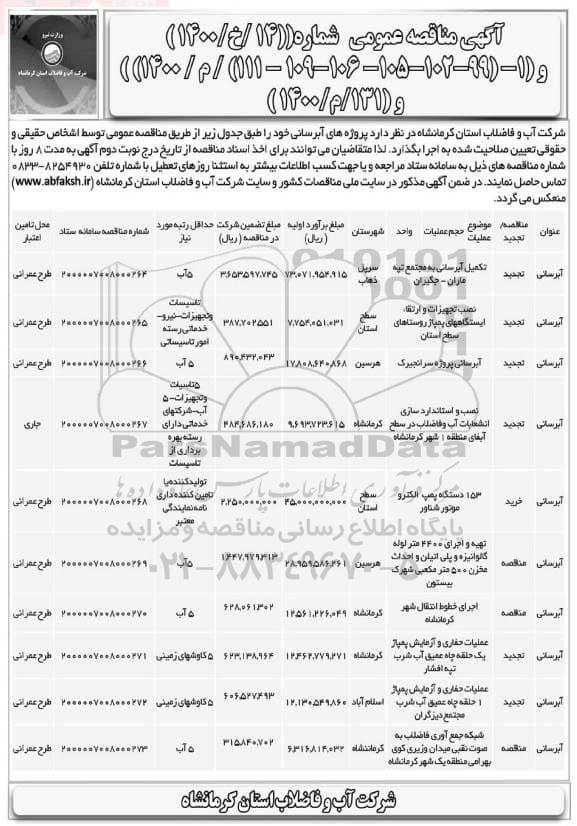 وزارت نیرو
شرکت آب و فاضلاب استان کرمانشاه
آگهی مناقصه عمومی شماره((۱۴ /خ/۱۴۰۰ )
و (۱- (۹۹-۱۰۲-۱۰۵-۱۰۶-۱۰۹ - ۱۱۱) / م / ۱۴۰۰) )
و (۱۳۱/م/۱۴۰۰ )
شرکت آب و فاضلاب استان کرمانشاه در نظر دارد پروژه های آبرسانی خود را طبق جدول زیر از طریق مناقصه عمومی توسط اشخاص حقیقی و
حقوقی تعیین صلاحیت شده به اجرا بگذارد. لذا متقاضیان می توانند برای اخذ اسناد مناقصه از تاریخ درج نوبت دوم آگهی به مدت ۸ روز با
شماره مناقصه های ذیل به سامانه ستاد مراجعه و یا جهت کسب اطلاعات بیشتر به استثنا روزهای تعطیل با شماره تلفن ۸۲۵۴۹۳۰-۰۸۳۳
تماس حاصل نمایند. در ضمن آگهی مذکور در سایت ملی مناقصات کشور و سایت شرکت آب و فاضلاب استان کرمانشاه (www.abfaksh.ir)
منعکس می گردد.
عنوان مناقصه/ تجدید موضوع حجم عملیات واحد عملیات شهرستان مبلغ برآورد اولیه ( ریال) مبلغ تضمین شرکت در مناقصه ( ریال) حداقل رتبه مورد نیاز شماره مناقصه سامانه ستاد محل تامین اعتبار
آبرسانی تجدید تکمیل آبرسانی به مجتمع تپه ماران - جگیران سرپل ذهاب ۷۳,۰۷۱,۹۵۴,۹۱۵ ۳,۶۵۳,۵۹۷,۷۴۵ ۵آب ۲۰۰۰۰۰۷۰۰۸۰۰۰۲۶۴ طرح عمرانی
آبرسانی تجدید نصب تجهیزات و ارتقاء ایستگاههای پمپاژ روستاهای سطح استان سطح استان ۷,۷۵۴,۰۵۱,۰۳۱ ۳۸۷,۷۰۲,۵۵۱ تاسیسات وتجهیزات-نیرو- خدماتی رسته امور تاسیساتی ۲۰۰۰۰۰۷۰۰۸۰۰۰۲۶۵ طرح عمرانی
آبرسانی تجدید آبرسانی پروژه سرانجیرک هرسین ۱۷,۸۰۸,۶۴۰,۸۶۸ ۸۹۰,۴۳۲,۰۴۳ ۵ آب ۲۰۰۰۰۰۷۰۰۸۰۰۰۲۶۶ طرح عمرانی
آبرسانی تجدید نصب و استاندارد سازی انشعابات آب وفاضلاب در سطح آبفای منطقه ۱ شهر کرمانشاه کرمانشاه ۹,۶۹۳,۷۲۳,۶۱۵ ۴۸۴,۶۸۶,۱۸۰ ۵تاسیات وتجهیزات-۵ آب-شرکتهای خدماتی دارای رسته بهره برداری از تاسیسات ۲۰۰۰۰۰۷۰۰۸۰۰۰۲۶۷ جاری
آبرسانی خرید ۱۵۳ دستگاه پمپ الکترو موتور شناور سطح استان ۴۵,۰۰۰,۰۰۰,۰۰۰ ۲,۲۵۰,۰۰۰,۰۰۰ تولیدکننده یا تامین کننده دارای نامه نمایندگی معتبر ۲۰۰۰۰۰۷۰۰۸۰۰۰۲۶۸ طرح عمرانی
آبرسانی مناقصه تهیه و اجرای ۴۴۰۰ متر لوله گالوانیزه و پلی اتیلن و احداث مخزن ۵۰۰ متر مکعبی شهرک بیستون هرسین ۲۸,۹۵۹,۵۸۶,۲۶۱ ۱,۴۴۷,۹۷۹,۳۱۳ ۵ آب ۲۰۰۰۰۰۷۰۰۸۰۰۰۲۶۹ طرح عمرانی
آبرسانی مناقصه اجرای خطوط انتقال شهر کرمانشاه کرمانشاه ۱۲,۵۶۱,۲۲۶,۰۴۹ ۶۲۸,۰۶۱,۳۰۲ ۵ آب ۲۰۰۰۰۰۷۰۰۸۰۰۰۲۷۰ طرح عمرانی
آبرسانی تجدید عملیات حفاری و آزمایش پمپاژ یک حلقه چاه عمیق آب شرب تپه افشار کرمانشاه ۱۲,۴۶۲,۷۷۹,۲۷۱ ۶۲۳,۱۳۸,۹۶۴ ۵ کاوشهای زمینی ۲۰۰۰۰۰۷۰۰۸۰۰۰۲۷۱ طرح عمرانی
آبرسانی تجدید عملیات حفاری و آزمایش پمپاژ ۱ حلقه چاه عمیق آب شرب مجتمع دیزگران اسلام آباد ۱۲,۱۳۰,۵۴۹,۸۶۰ ۶۰۶,۵۲۷,۴۹۳ ۵ کاوشهای زمینی ۲۰۰۰۰۰۷۰۰۸۰۰۰۲۷۲ طرح عمرانی
آبرسانی مناقصه شبکه جمع آوری فاضلاب به صوت نقبی میدان وزیری کوی بهرامی منطقه یک شهر کرمانشاه کرماننشاه ۶,۳۱۶,۸۱۴,۰۳۲ ۳۱۵,۸۴۰,۷۰۲ ۵ آب ۲۰۰۰۰۰۷۰۰۸۰۰۰۲۷۳ طرح عمرانی
ParsNamadData
پایگاه اطلاع رسانی مناقصه و مزایده
۰۲۱-۸۸۳۴۹۶۷۰-۵
شرکت آب و فاضلاب استان کرمانشاه